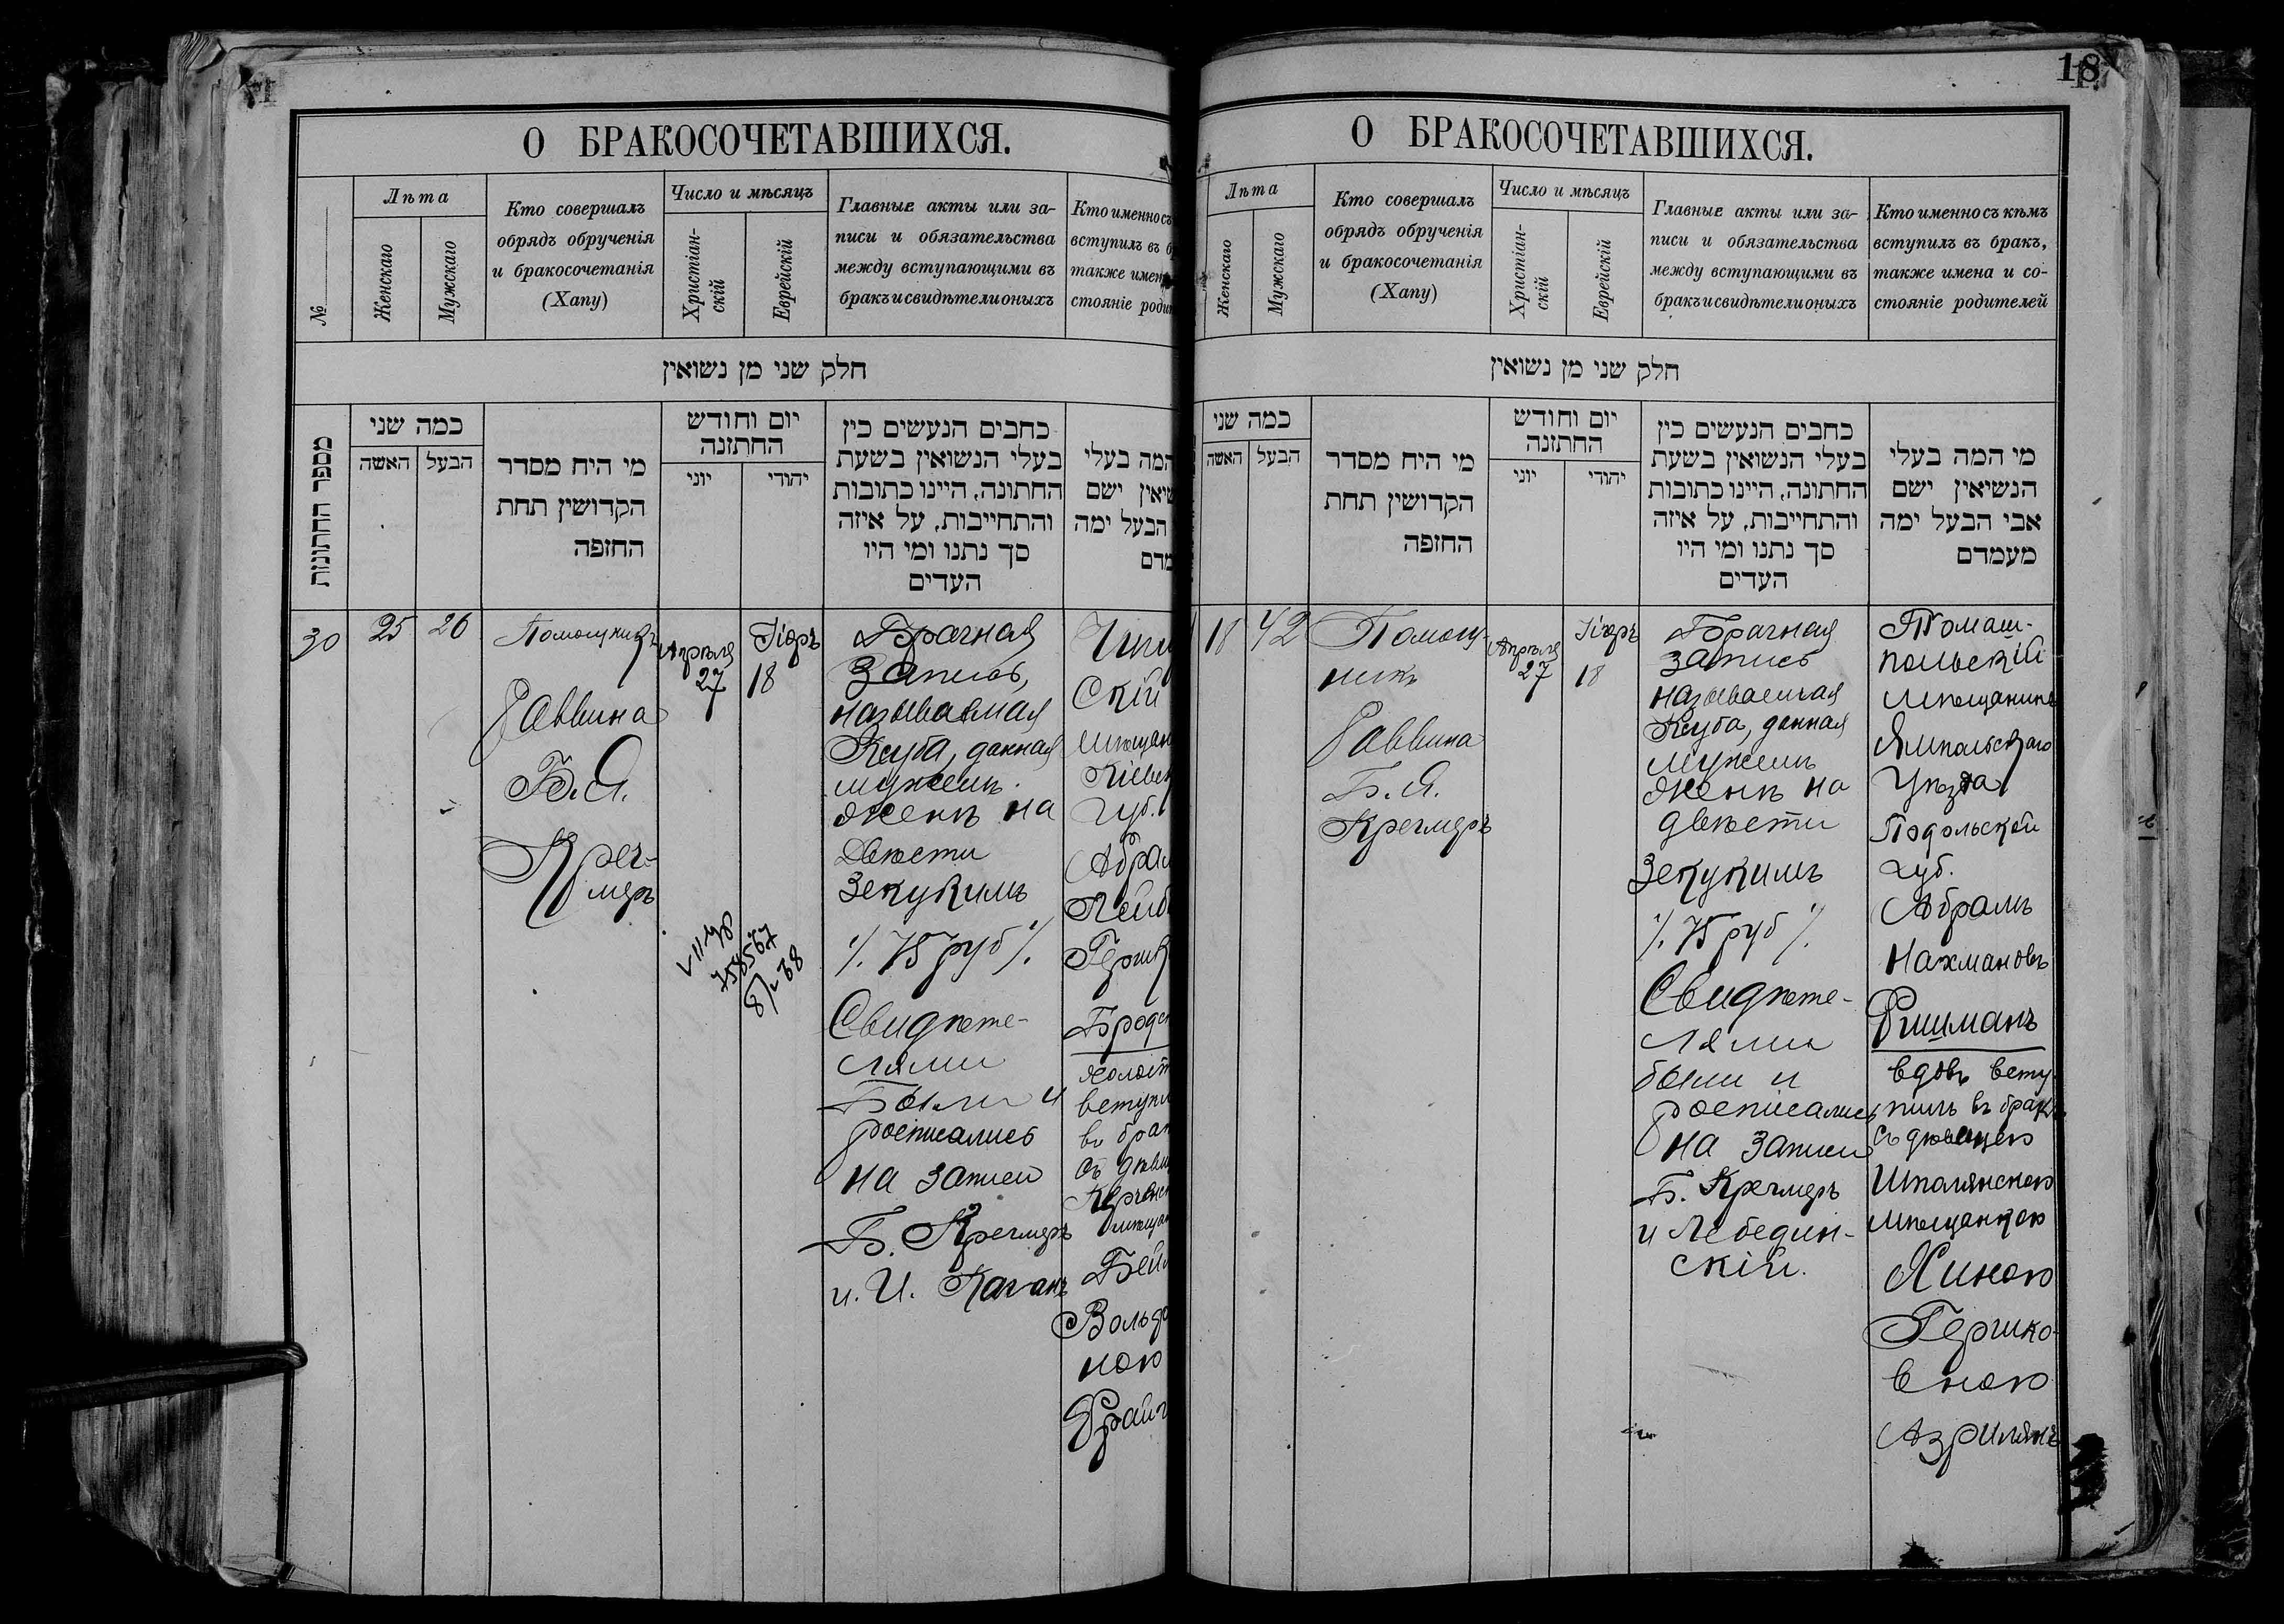 18
О БРАКОСОЧЕТАВШИХСЯ.
№
Лѣта
Женскаго
Мужскаго
Кто совершалъ
обрядъ обрученія
и бракосочетанія
(Хапу)
Число и мѣсяцъ
Христіан-
скій
Еврейскій
Главные акты или за-
писи и обязательства
между вступающими въ
бракъ и свидѣтели оныхъ
Кто именно съ
вступилъ въ б
также имен
стояніе роди
חלק שני מן נשואין
מספר החתונות
כמה שני
האשה
הבעל
מי היח מסדר
הקדושין תחת
החופה
יום וחודש
החתונה
יוני
יהודי
כתבים הנעשים כין
בעלי הנשואין בשעת
החתונה, היינו כתובות
והתחייבות, על איזה
סך נתנו ומי היו
העדים
המה בעלי
שיאין ישם
הבעל ימה
מדם
30
25
26
Помощникъ
Раввина
Б.Я.
Креч-
меръ
Апрѣля
27
Іiоръ
18
Брачная
Запись,
называемая
Ксуба, данная
мужемъ
женѣ на
Двѣсти
Зекукимъ
/. 75 руб /.
Свидѣте-
лями
Были и
росписались
на записи
Б. Кречмеръ
и. И. Каганъ
Скій
мѣщан
Кіевск
губ.
Абрам
Лейб
Гершк
Бродс
холост
вступи
въ брак
съ дѣви
мѣщан
Бейл
Вольфо
ною
Фрайг
758567
О БРАКОСОЧЕТАВШИХСЯ.
Лѣта
Женскаго
Мужскаго
Кто совершалъ
обрядъ обрученія
и бракосочетанія
(Хапу)
Число и мѣсяцъ
Христіан-
скій
Еврейскій
Главные акты или за-
писи и обязательства
между вступающими въ
бракъ и свидѣтели оныхъ
Кто именно съ кѣмъ
вступилъ въ бракъ,
также имена и со-
стояніе родителей
חלק שני מן נשואין
כמה שני
האשה
הבעל
מי היח מסדר
הקדושין תחת
החופה
יום וחודש
החתונה
יוני
יהודי
כתבים הנעשים כין
בעלי הנשואין בשעת
החתונה, היינו כתובות
והתחייבות, על איזה
סך נתנו ומי היו
העדים
מי המה בעלי
הנשיאין ישם
אבי הבעל ימה
מעמדם
18
42
Помощ-
никъ
Раввина
Б.Я.
Кречмеръ
Апрѣля
27
Іiоръ
18
Брачная
запись
называемая
Ксуба, данная
мужемъ
женѣ на
двѣсти
Зекукимъ
/. 75 руб /.
Свидѣте-
лями
были и
росписались
на записи
Б. Кречмеръ
и Лебедин-
скій.
Томаш-
польскій
мѣщанинъ
Ямпольскаго
Уѣзда
Подольской
губ.
Абрамъ
Нахмановъ
Фишманъ
вдовъ всту-
пилъ въ бракъ
съ дѣвицею
Шполянскою
мѣщанкою
Хиною
Гершко-
вною
Азрилянъ